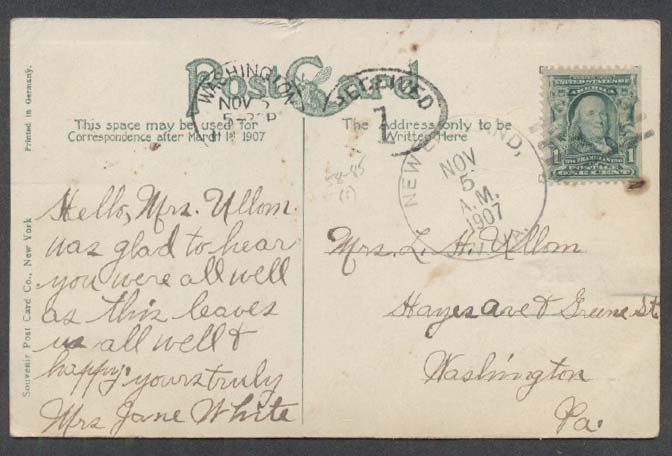 Post Card
WASHINGTON
NOV 5
RECEIVED
1
This space may be used for
Correspondence after March 1st 1907
The Address only to be
Written Here
NEW
ND,
NOV
5
A.M.
1907
PA.
UNITED STATES OF
AMERICA
1
1
POSTAGE
ONE CENT
58-85
Printed in Germany.
Souvenir Post Card Co., New York
Hello, Mrs. Ullom.
was glad to hear
you were all well
as this leaves
us all well &
happy. yours truly
Mrs Jane White
Mrs. L. H. Ullom
Hayes ave & Greene St
Washington
Pa.